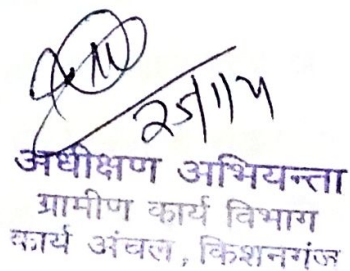 25/1/14
अधीक्षण अभियन्ता
ग्रामीण कार्य विभाग
कार्य अंचल, किशनगंज